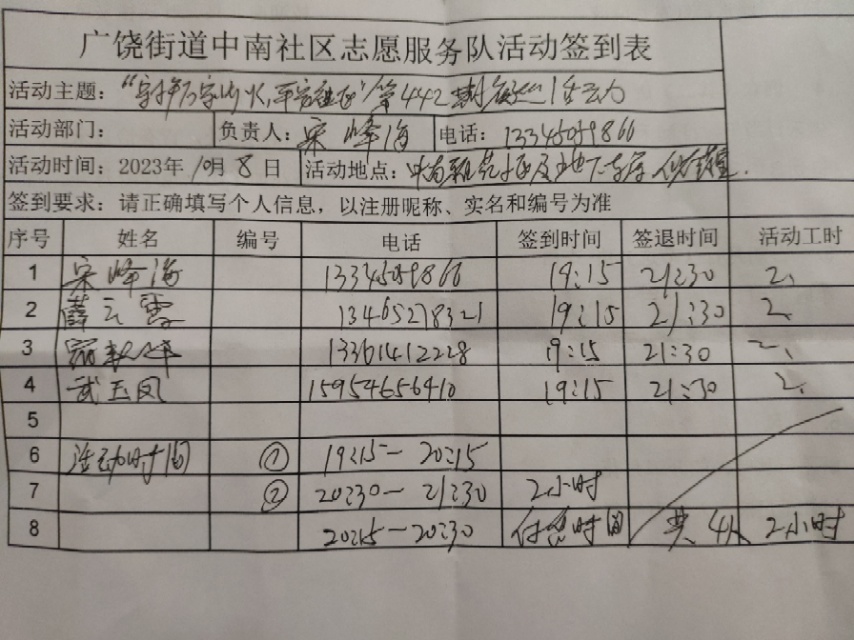 广饶街道中南社区志愿服务队活动签到表
活动主题： 第442期 活动
活动部门： 负责人：宋峰海 电话：13345049866
活动时间：2023年10月8日 活动地点：
签到要求：请正确填写个人信息，以注册昵称、实名和编号为准
序号 姓名 编号 电话 签到时间 签退时间 活动工时
1 宋峰海 19:15 21:30 2、
2 薛云雪 13465278321 19:15 21:30 2、
3 13361412228 19:15 21:30 2、
4 武玉凤 15954656410 19:15 21:30 2、
5
6 活动时间 ① 19:15— 20:15
7 ② 20:30— 21:30 2小时
8 20:15—20:30 休息时间 共4人 2小时